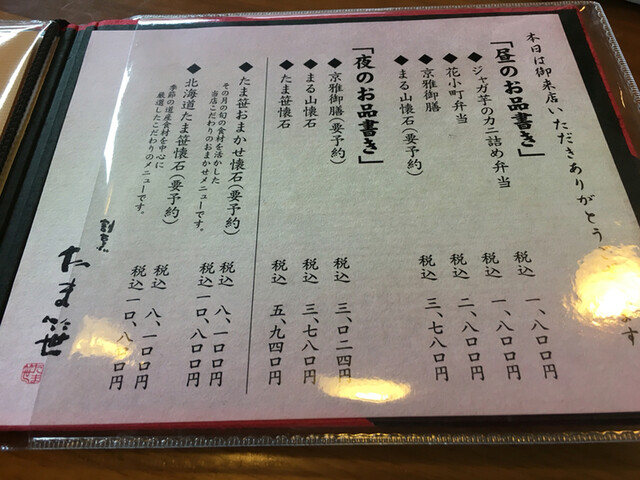 本日は御来店いただきありがとう
す
「昼のお品書き」
◆ジャガ芋のカニ詰め弁当 税込 一、八〇〇円
◆花小町弁当 税込 一、八〇〇円
◆京雅御膳 税込 二、八〇〇円
◆まる山懐石(要予約) 税込 三、七八〇円
「夜のお品書き」
◆京雅御膳(要予約) 税込 三、〇二四円
◆まる山懐石 税込 三、七八〇円
◆たま笹懐石 税込 五、九四〇円
◆たま笹おまかせ懐石(要予約) 税込 八、一〇〇円
その月の旬の食材を活かした
当店こだわりのおまかせメニューです。 税込 一〇、八〇〇円
◆北海道たま笹懐石(要予約) 税込 八、一〇〇円
季節の道産食材を中心に
厳選したこだわりのメニューです。 税込 一〇、八〇〇円
たま笹